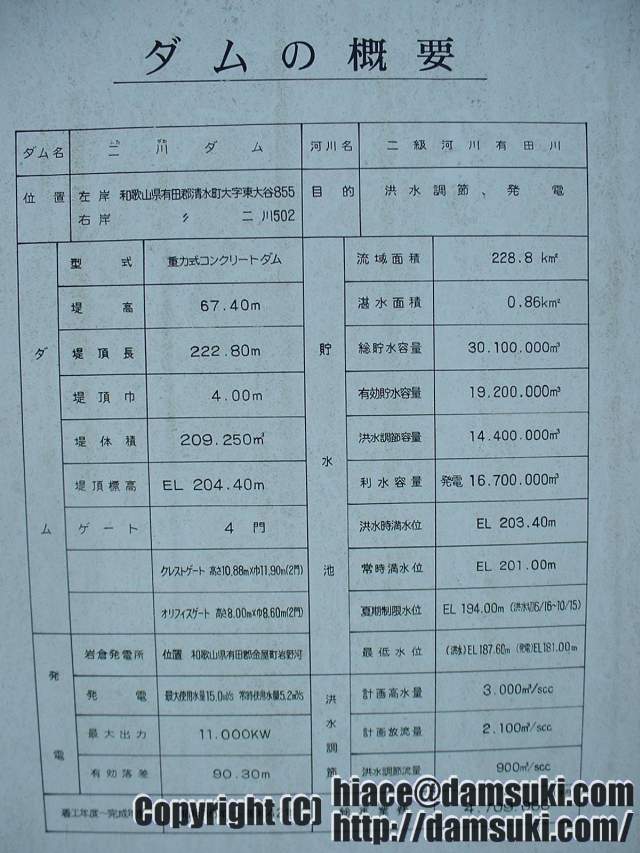 ダムの概要
ダム名 二川ダム 河川名 二級河川有田川
位置 左岸 和歌山県有田郡清水町大字東大谷855 目的 洪水調節、発電
右岸 〃 二川502
ダム
型式 重力式コンクリートダム
堤高 67.40m
堤頂長 222.80m
堤頂巾 4.00m
堤体積 209.250㎥
堤頂標高 EL 204.40m
ゲート 4門
クレストゲート 高さ10.88m×巾11.90m(2門)
オリフィスゲート 高さ8.00m×巾8.60m(2門)
貯水池
流域面積 228.8 km²
湛水面積 0.86km²
総貯水容量 30.100.000㎥
有効貯水容量 19.200.000㎥
洪水調節容量 14.400.000㎥
利水容量 発電 16.700.000㎥
洪水時満水位 EL 203.40m
常時満水位 EL 201.00m
夏期制限水位 EL 194.00m (洪水期6/16~10/15)
最低水位 (洪水)EL187.60m (発電)EL181.00m
発電
岩倉発電所 位置 和歌山県有田郡金屋町岩野河
発電 最大使用水量15.0㎥/s 常時使用水量5.2㎥/s
最大出力 11.000KW
有効落差 90.30m
洪水調節
計画高水量 3.000㎥/scc
計画放流量 2.100㎥/scc
洪水調節流量 900㎥/scc
着工年度－完成
Copyright (C) hiace@damsuki.com
http://damsuki.com/